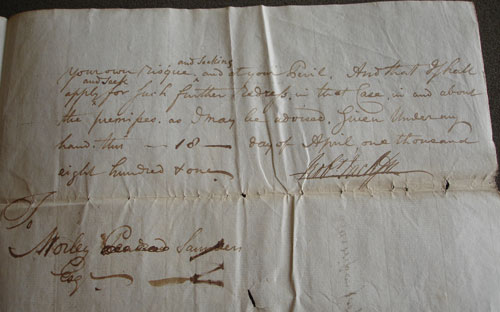 and Seeking
your own Risque, and at your Peril. And that I shall
and Seek
apply for such further Redress, in that Case, in and about
the premises, as I may be advised. Given Under my
hand this — 18 — day of April one thousand
eight hundred & one
To
Morley Saunders
Esq.